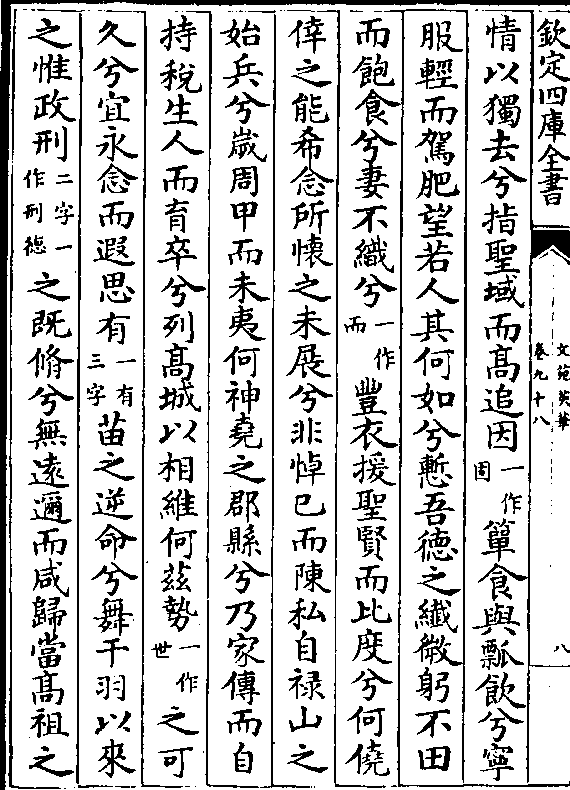 欽定四庫全書
文苑英華
卷九十八
八
情以獨去兮指聖域而髙追因一作固簞食與瓢飲兮寧
服輕而駕肥望若人其何如兮慙吾德之纎微躬不田
而飽食兮妻不織兮一作而豐衣援聖賢而比度兮何僥
倖之能希念所懐之未展兮非悼已而陳私自禄山之
始兵兮嵗周甲而未夷何神堯之郡縣兮乃家傳而自
持稅生人而育卒兮列髙城以相維何茲勢一作世之可
久兮宜永念而遐思有一有三字苗之逆命兮舞干羽以來
之惟政刑二字一作刑德之既脩兮無逺邇而咸歸當髙祖之